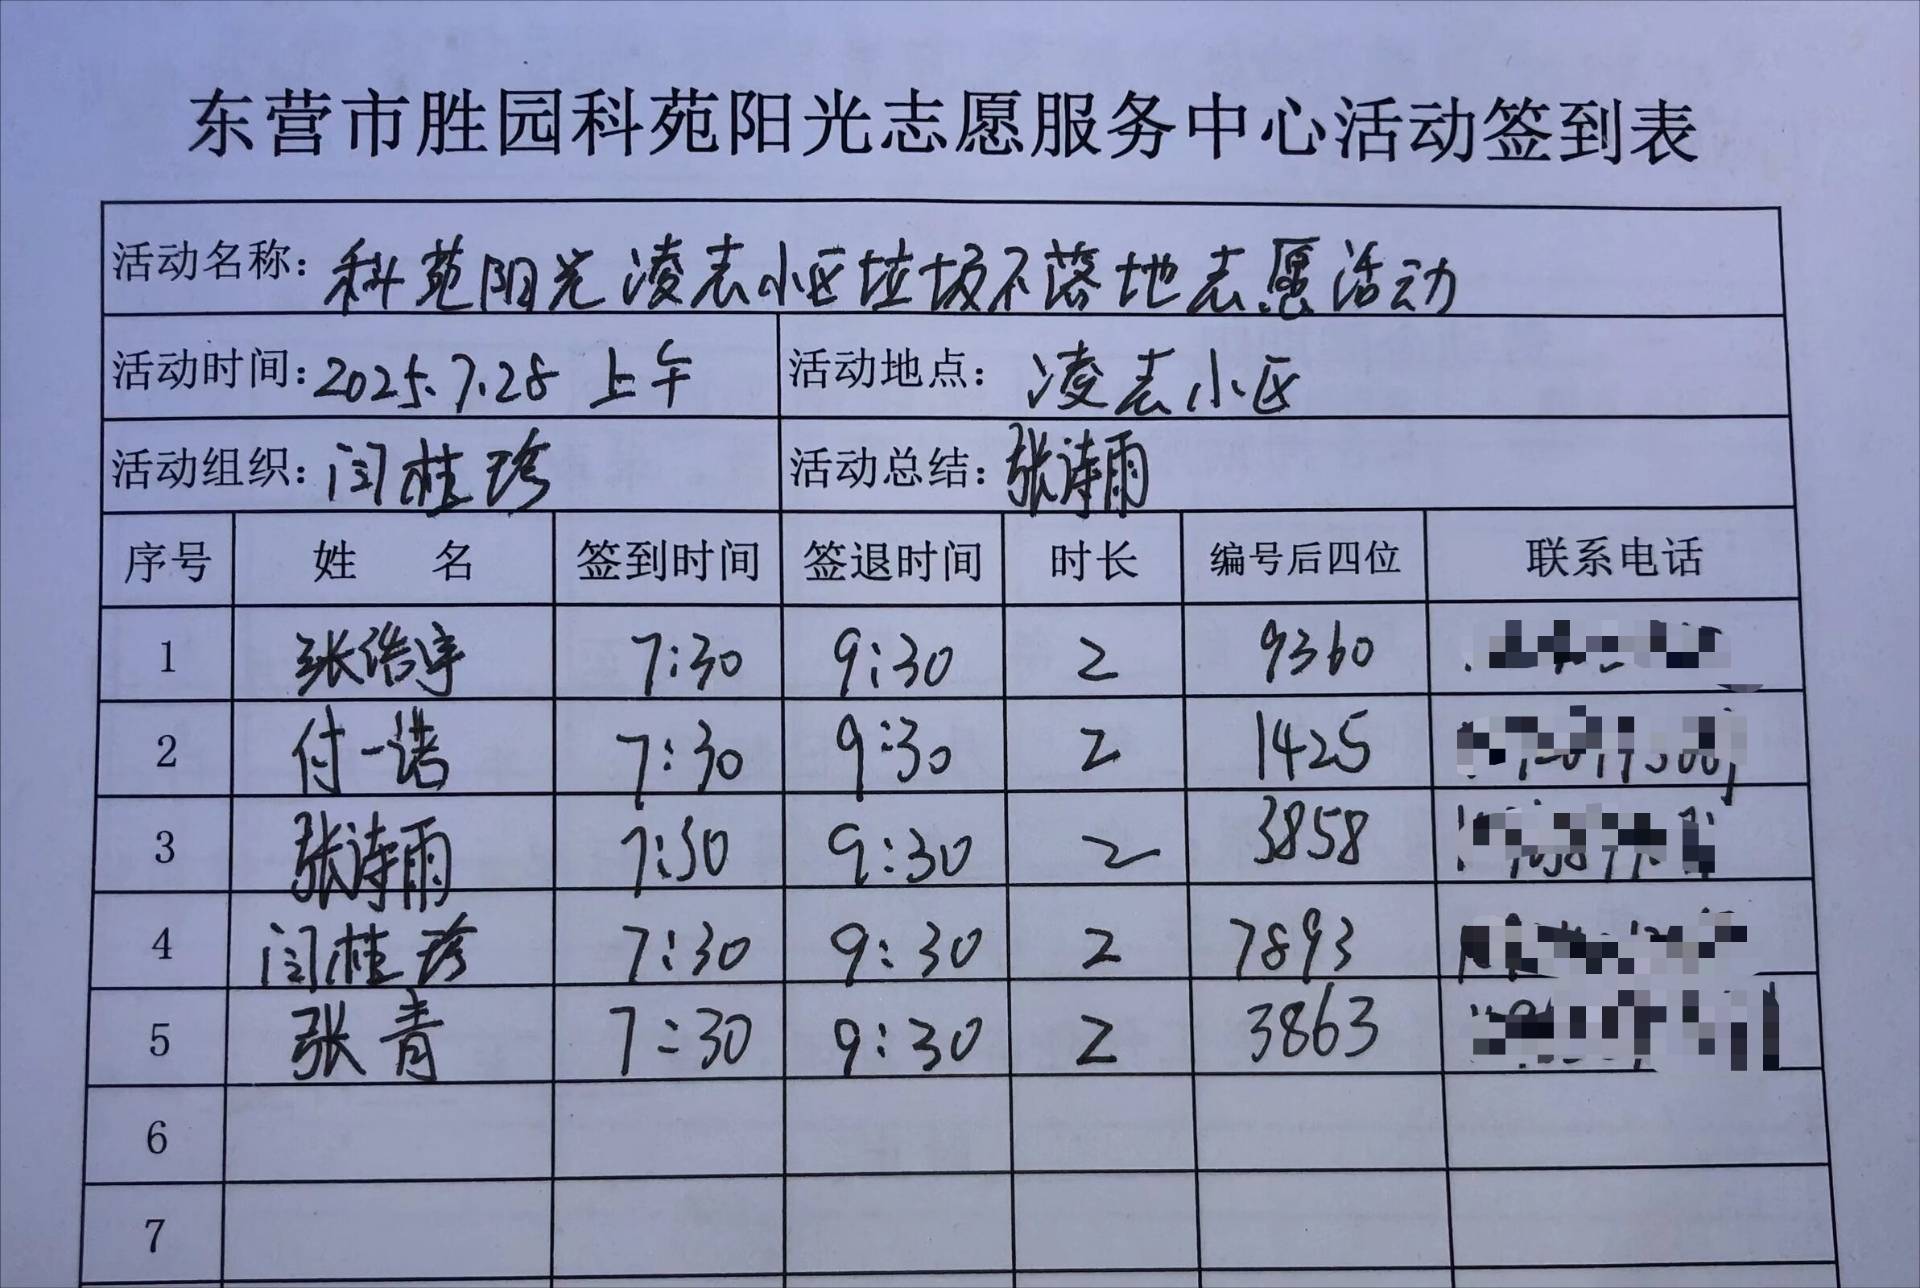 东营市胜园科苑阳光志愿服务中心活动签到表
活动名称：科苑阳光凌志小区垃圾不落地志愿活动
活动时间：2025.7.28 上午 活动地点：凌志小区
活动组织：闫桂珍 活动总结：张诗雨
序号 姓 名 签到时间 签退时间 时长 编号后四位 联系电话
1 张浩宇 7:30 9:30 2 9360
2 付一诺 7:30 9:30 2 1425
3 张诗雨 7:30 9:30 2 3858
4 闫桂珍 7:30 9:30 2 7893
5 张青 7:30 9:30 2 3863
6
7